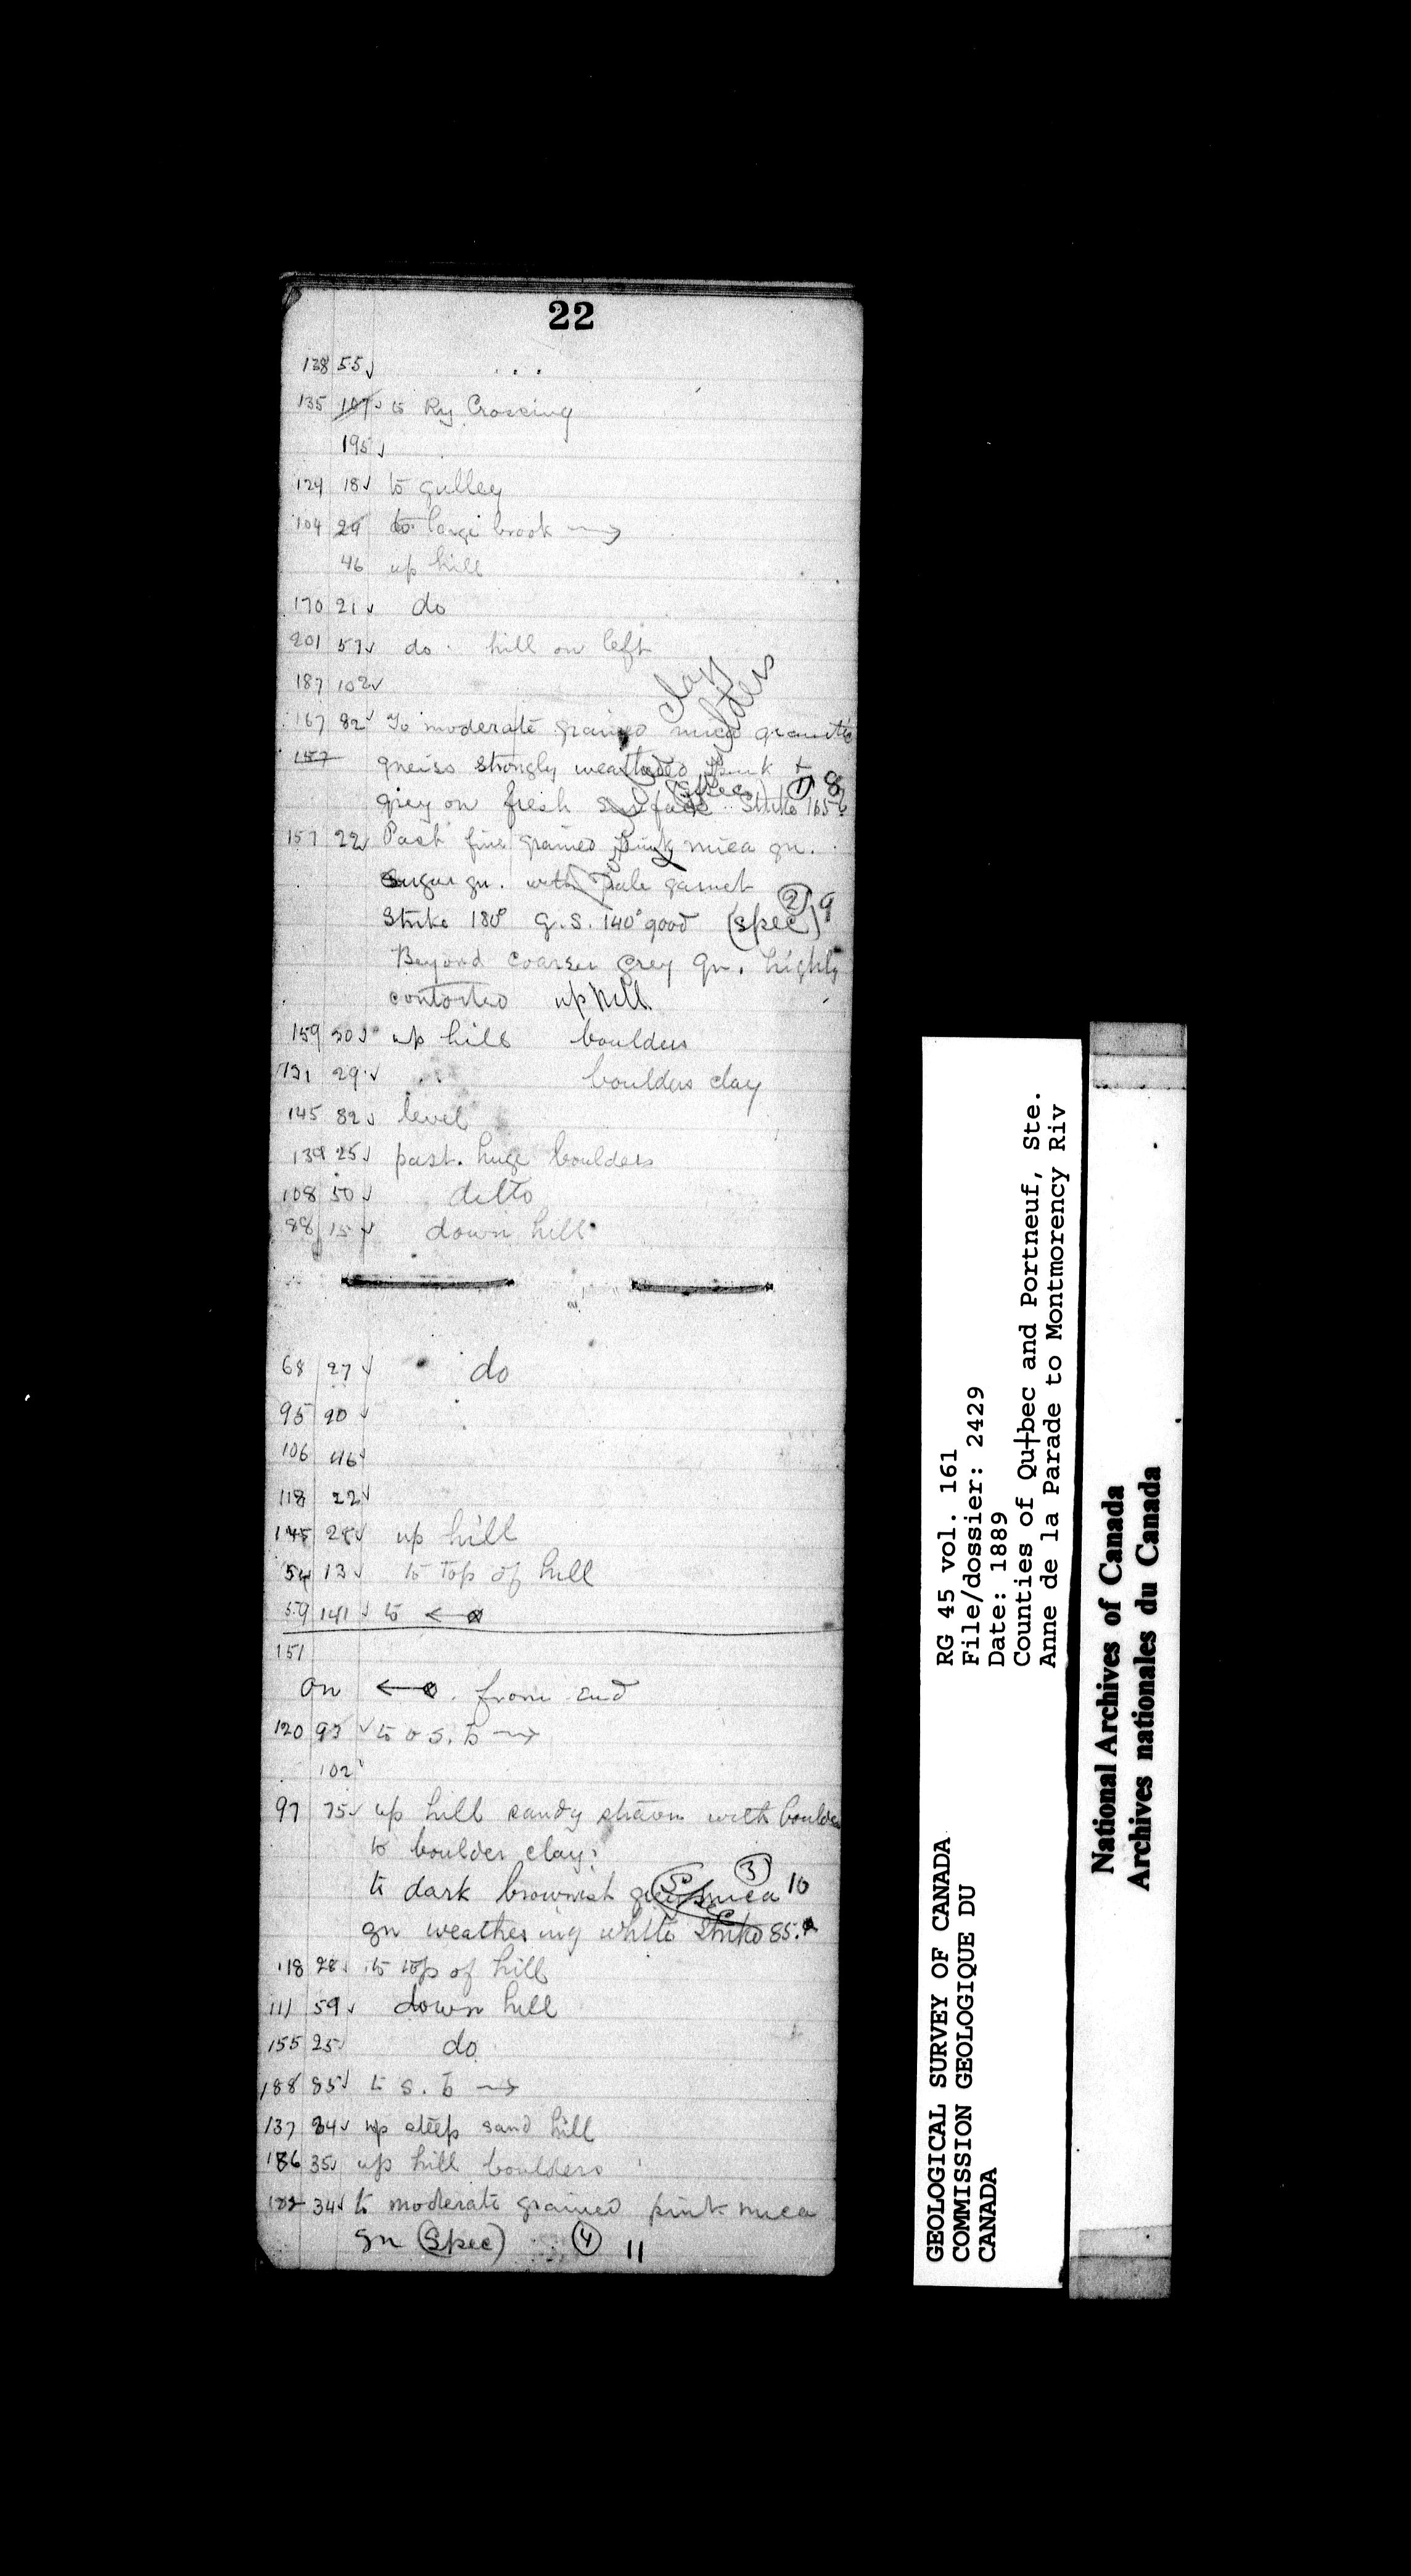 22
138 55
135 107 to Ry Crossing
195
124 18 to gulley
104 29 to large brook →
46 up hill
170 21 do
201 57 do. hill on left
187 102
clay boulders
167 82 To moderate grained mica granite
157 gneiss strongly weathered pink +
(Spec) 1 8
grey on fresh surface. Strike 165°
157 22 Past fine grained pink mica gn.
Sugar gn. with pale garnet
Strike 180° G.S. 140° good (spec) 2 9
Beyond coarser grey gn. highly
contorted up hill
159 30 up hill boulders
131 29 boulders clay
145 82 level
139 25 past. huge boulders
108 50 ditto
88 15 down hill
68 27 do
95 20
106 46
118 22
145 28 up hill
54 13 to top of hill
59 141 to ←
151
On ← from end
120 93 to →
102
97 75 up hill sandy with boulder
to boulder clay:
to dark brownish grey mica (Spec) 3 10
gn weathering white Strike 85.
118 28 to top of hill
111 59 down hill
155 25 do
188 85 to s. →
137 34 up steep sand hill
186 35 up hill boulders
102 34 to moderate grained pink mica
gn (Spec) 4 11
GEOLOGICAL SURVEY OF CANADA
COMMISSION GEOLOGIQUE DU
CANADA
RG 45 vol. 161
File/dossier: 2429
Date: 1889
Counties of Qu┼bec and Portneuf, Ste.
Anne de la Parade to Montmorency Riv
National Archives of Canada
Archives nationales du Canada